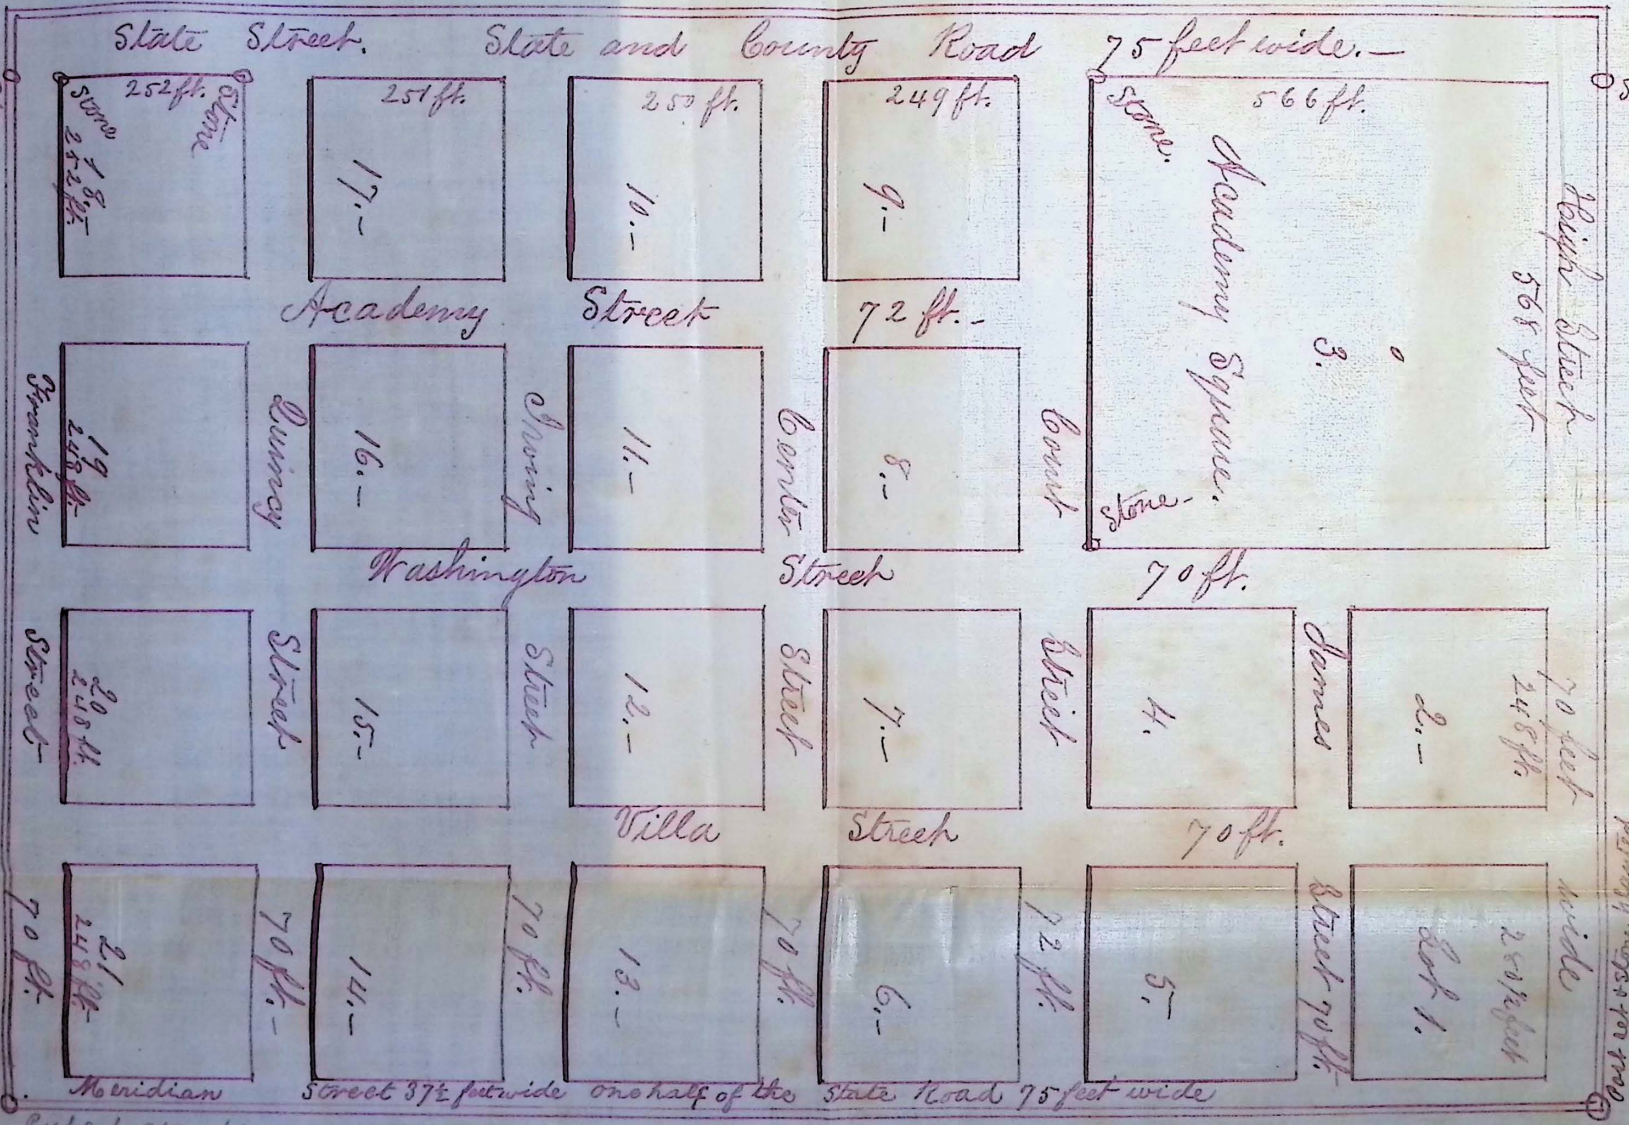 State Street. State and County Road 75 feet wide.—
252 ft.
Stone
Stone
18.—
252 ft.
251 ft.
17.—
250 ft.
10.—
249 ft.
9.—
566 ft.
Stone.
Academy Square.
3.
Stone-
High Street
568 feet
Academy Street 72 ft.-
Franklin
19
248 ft.
Quincy
16.—
Irving
11.—
Center
8.—
Court
Washington Street 70 ft.
Street
20
248 ft.
Street
15.—
Street
12.—
Street
7.—
Street
4.
James
2.—
248 ft.
70 feet
Villa Street 70 ft.
70 ft.
21
248 ft.
70 ft.-
14.—
70 ft.
13.—
70 ft.
6.—
72 ft.
5-
Street 70 ft.
Lot 1.
wide
Meridian Street 37½ feet wide one half of the State Road 75 feet wide